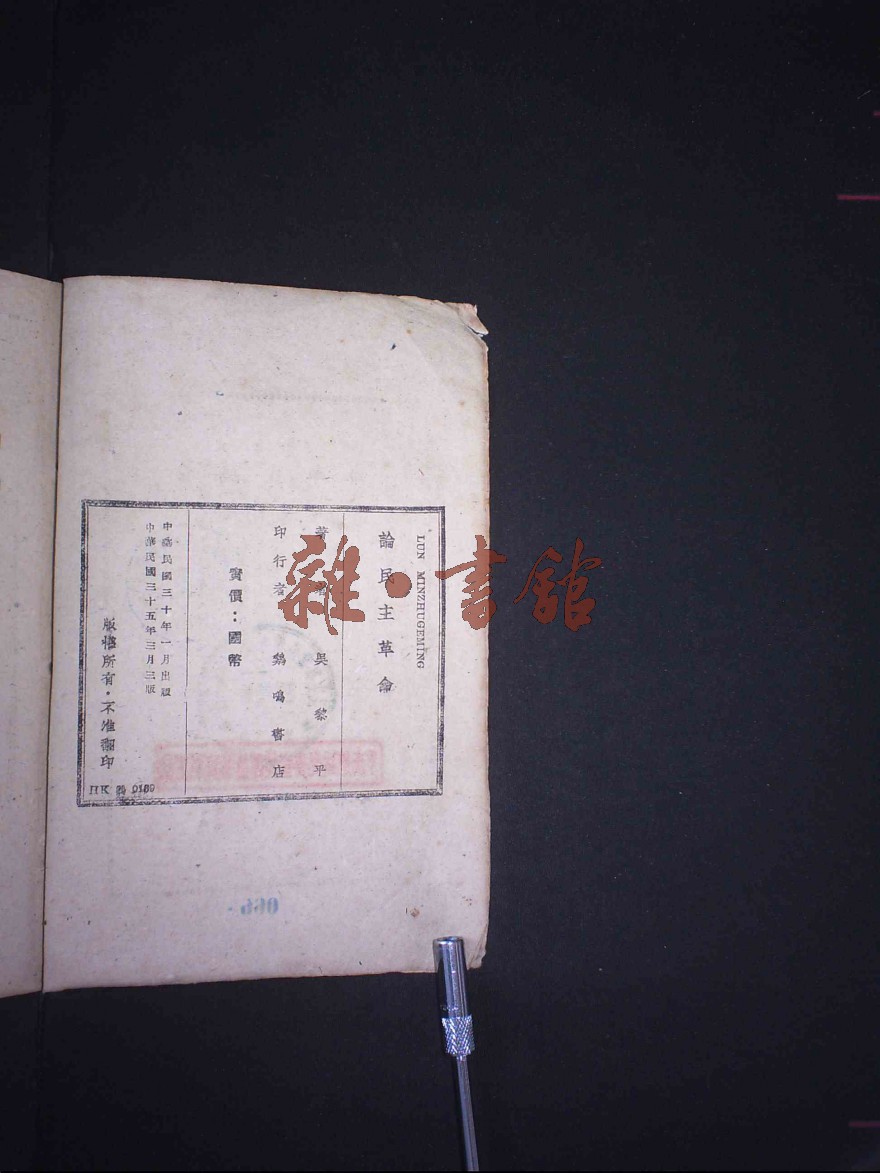 LUN MINZHUGEMING
論民主革命
著 吳黎平
印行者 鷄鳴書店
實價：國幣
中華民國三十年一月出版
中華民國三十五年三月三版
版權所有·不准翻印
HK 0189
雜·書館